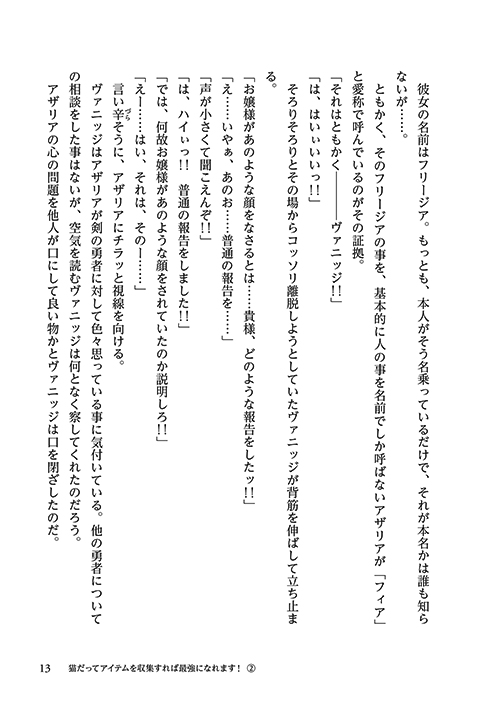 彼女の名前はフリージア。もっとも、本人がそう名乗っているだけで、それが本名かは誰も知ら
ないが……。
ともかく、そのフリージアの事を、基本的に人の事を名前でしか呼ばないアザリアが「フィア」
と愛称で呼んでいるのがその証拠。
「それはともかく――ヴァニッジ!!」
「は、はいぃいいっ!!」
そろりそろりとその場からコッソリ離脱しようとしていたヴァニッジが背筋を伸ばして立ち止ま
る。
「お嬢様があのような顔をなさるとは……貴様、どのような報告をしたッ!!」
「え……いやぁ、あのお……普通の報告を……」
「声が小さくて聞こえんぞ!!」
「は、ハイぃっ!! 普通の報告をしました!!」
「では、何故お嬢様があのような顔をされていたのか説明しろ!!」
「えー……はい、それは、そのー……」
言い辛そうに、アザリアにチラッと視線を向ける。
づら
ヴァニッジはアザリアが剣の勇者に対して色々思っている事に気付いている。他の勇者について
の相談をした事はないが、空気を読むヴァニッジは何となく察してくれたのだろう。
アザリアの心の問題を他人が口にして良い物かとヴァニッジは口を閉ざしたのだ。
13 猫だってアイテムを収集すれば最強になれます! ②